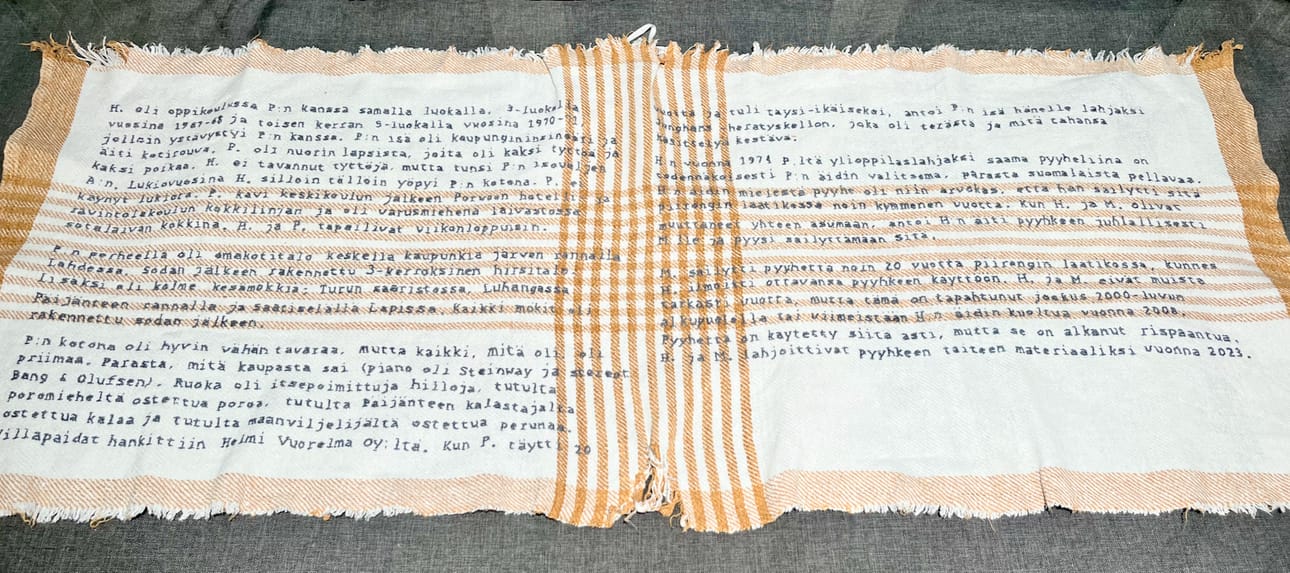 H. oli oppikoulussa P:n kanssa samalla luokalla, 3-luokalla
vuosina 1967-68 ja toisen kerran 5-luokalla vuosina 1970-71
jolloin ystävystyi P:n kanssa. P:n isä oli kaupungininsinööri ja
äiti kotirouva. P. oli nuorin lapsista, joita oli kaksi tyttöä ja
kaksi poikaa. H. ei tavannut tyttöjä, mutta tunsi P:n isoveljen
A:n. Lukiovuosina H. silloin tällöin yöpyi P:n kotona. P. ei
käynyt lukiota. P. kävi keskikoulun jälkeen Porvoon hotelli- ja
ravintolakoulun kokkilinjan ja oli varusmiehenä laivastossa
sotalaivan kokkina. H. ja P. tapailivat viikonloppuisin.
P:n perheellä oli omakotitalo keskellä kaupunkia järven rannalla
Lahdessa, sodan jälkeen rakennettu 3-kerroksinen hirsitalo.
Lisäksi oli kolme kesämökkiä: Turun saaristossa, Luhangassa
Päijänteen rannalla ja Saariselällä Lapissa. Kaikki mökit oli
rakennettu sodan jälkeen.
P:n kotona oli hyvin vähän tavaraa, mutta kaikki, mitä oli, oli
priimaa. Parasta, mitä kaupasta sai (piano oli Steinway ja stereot
Bang & Olufsen). Ruoka oli itsepoimittuja hilloja, tutulta
poromieheltä ostettua poroa, tutulta Päijänteen kalastajalta
ostettua kalaa ja tutulta maanviljelijältä ostettua perunaa.
Villapaidat hankittiin Helmi Vuorelma Oy:ltä. Kun P. täytti 20
vuotta ja tuli täysi-ikäiseksi, antoi P:n isä hänelle lahjaksi
Junghans herätyskellon, joka oli terästä ja mitä tahansa
käsittelyä kestävä.
H:n vuonna 1974 P.ltä ylioppilaslahjaksi saama pyyheliina on
todennäköisesti P:n äidin valitsema, parasta suomalaista pellavaa.
H:n äidin mielestä pyyhe oli niin arvokas, että hän säilytti sitä
piirongin laatikossa noin kymmenen vuotta. Kun H. ja M. olivat
muuttaneet yhteen asumaan, antoi H:n äiti pyyhkeen juhlallisesti
M:lle ja pyysi säilyttämään sitä.
M. säilytti pyyhettä noin 20 vuotta piirongin laatikossa, kunnes
H. ilmoitti ottavansa pyyhkeen käyttöön. H. ja M. eivät muista
tarkasti vuotta, mutta tämä on tapahtunut joskus 2000-luvun
alkupuolella tai viimeistään H:n äidin kuoltua vuonna 2008.
Pyyhettä on käytetty siitä asti, mutta se on alkanut rispaantua.
H. ja M. lahjoittivat pyyhkeen taiteen materiaaliksi vuonna 2023.